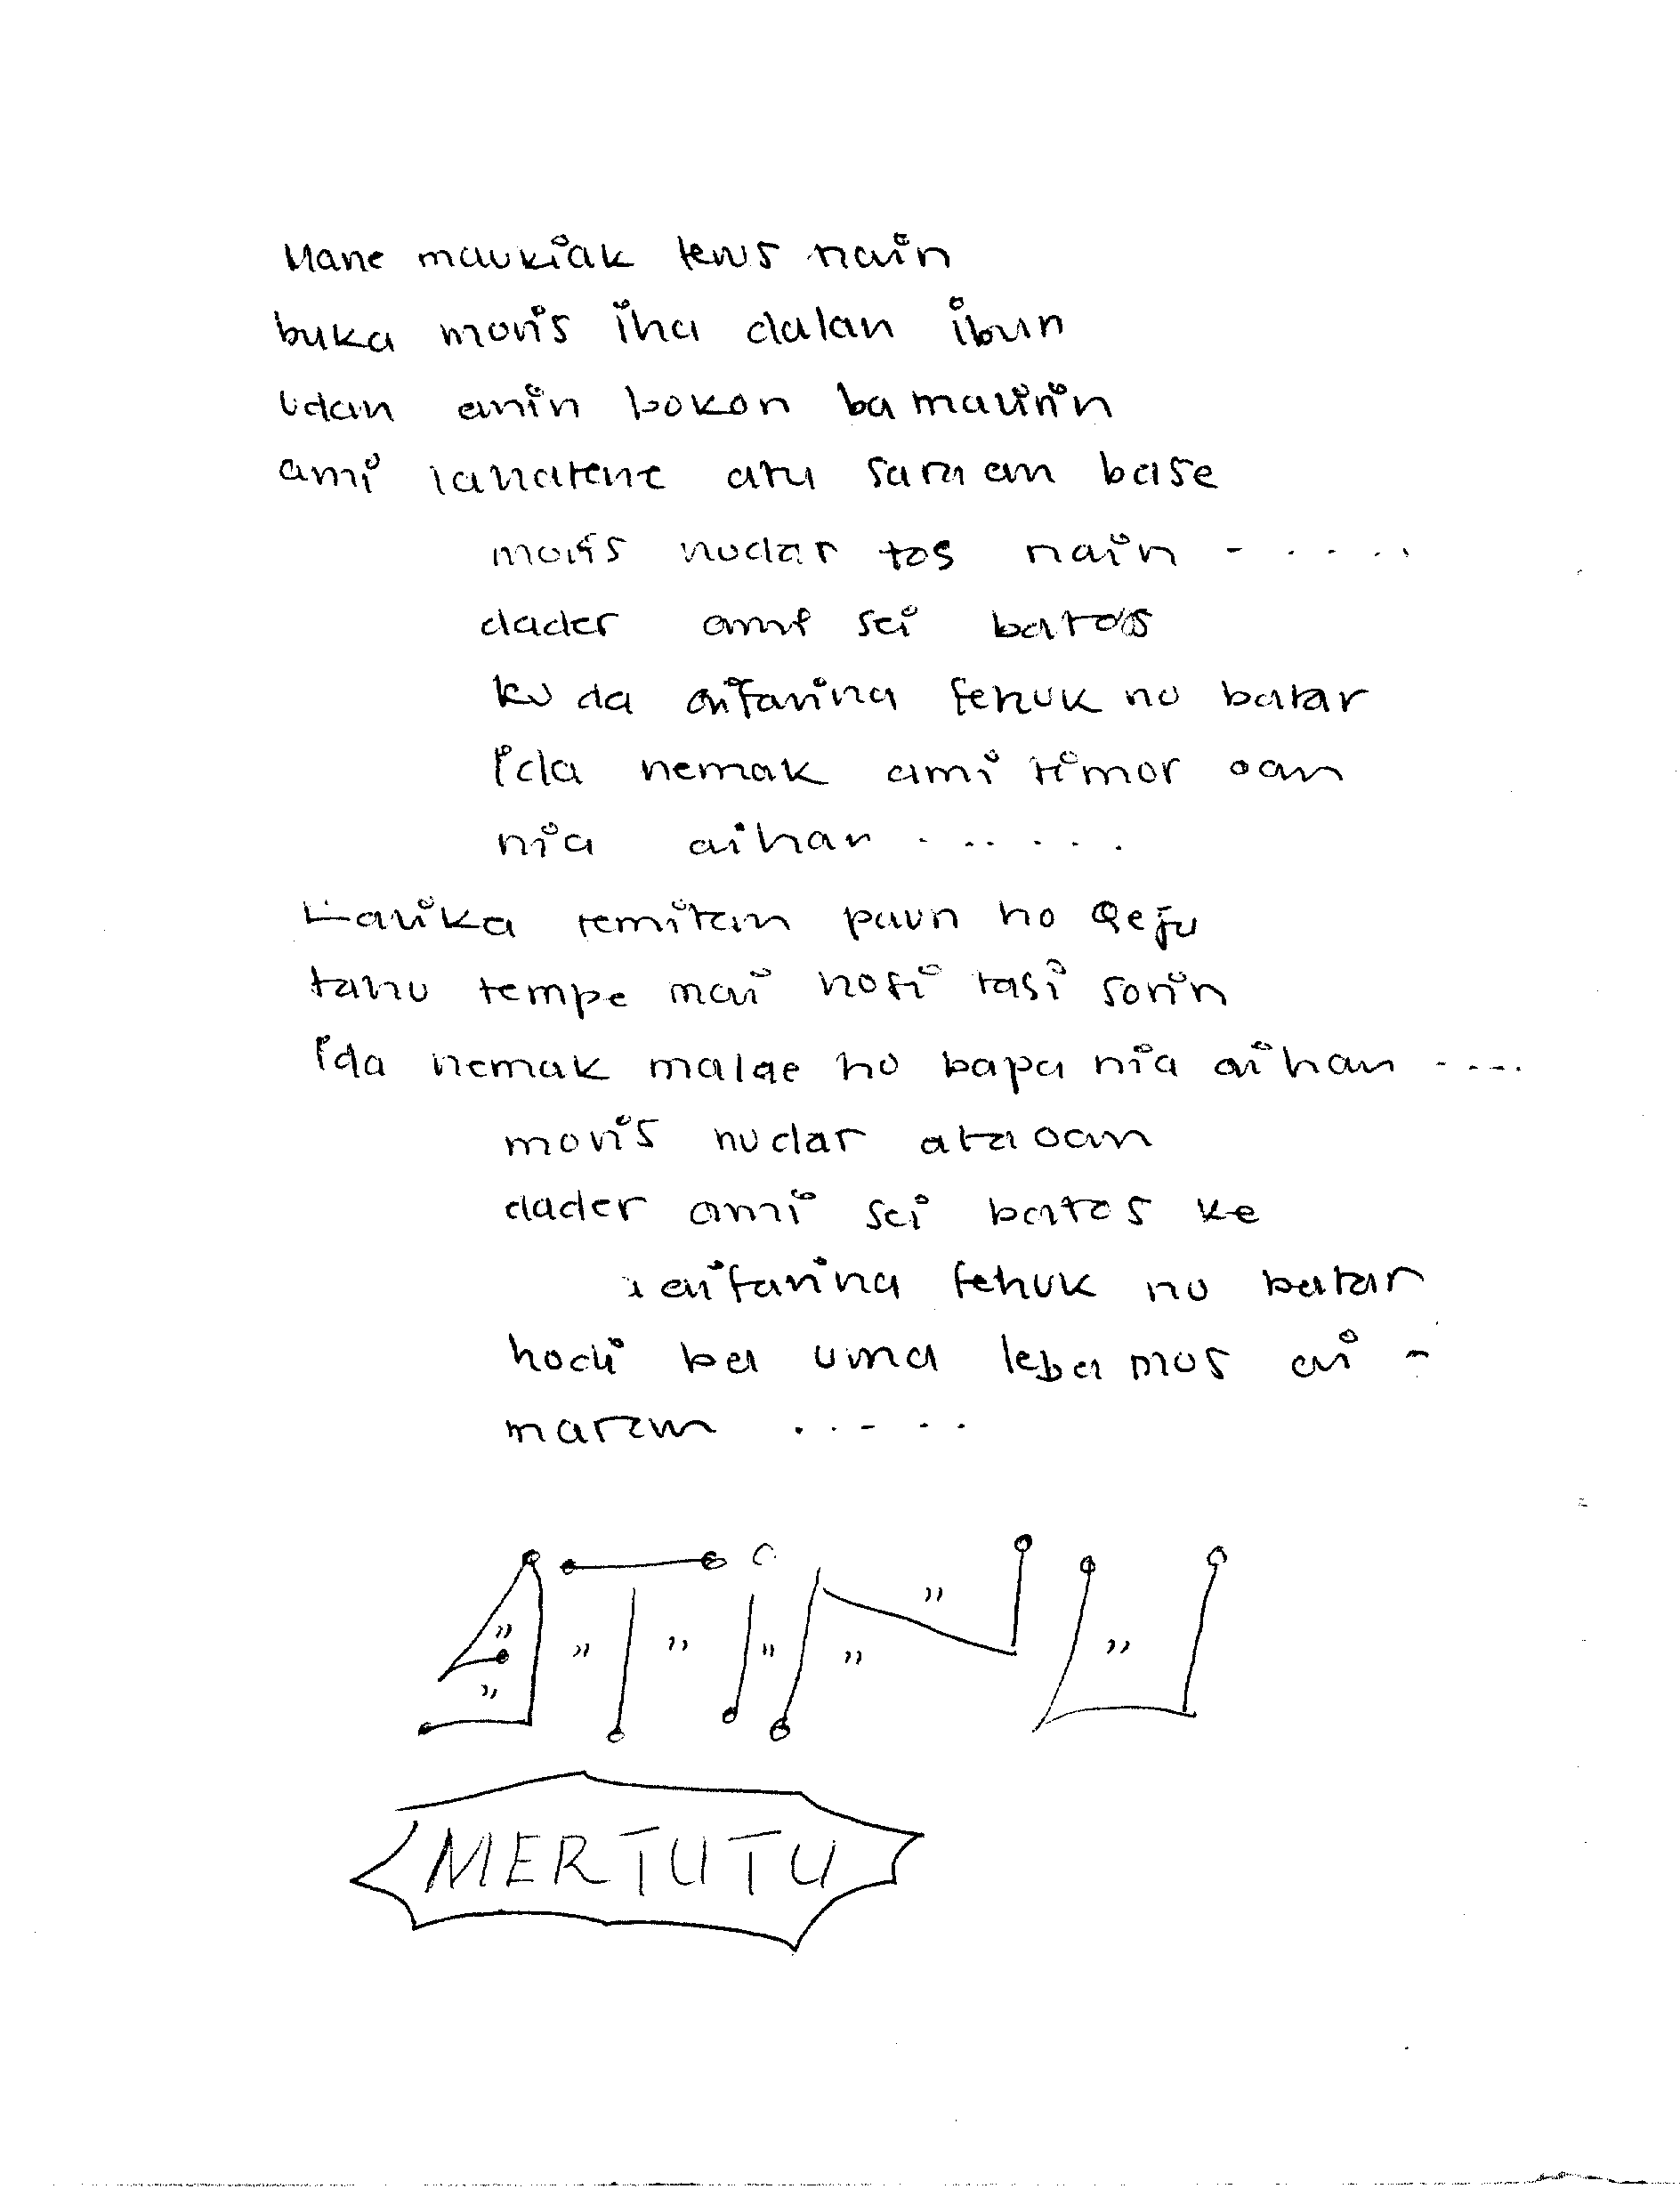 Mane maukiak leus nain
buka moris iha dalan ibun
Udan anin bokon ba malirin
ami lahatene atu sara an base
moris nudar tos nain - . . . . .
dader ami sei batos
kuda aifarina fehuk no batar
Ida nemak ami timor oan
nia aihan . . . . . .
Larika remitan paun ho Qeju
tahu tempe mai hosi tasi sorin
Ida nemak malae ho bapa nia aihan - . . . .
moris nudar ata oan
dader ami sei batos ke
aifarina fehuk no batar
hodi ba uma leba mos ai -
maran . . . - . .
MERTUTU